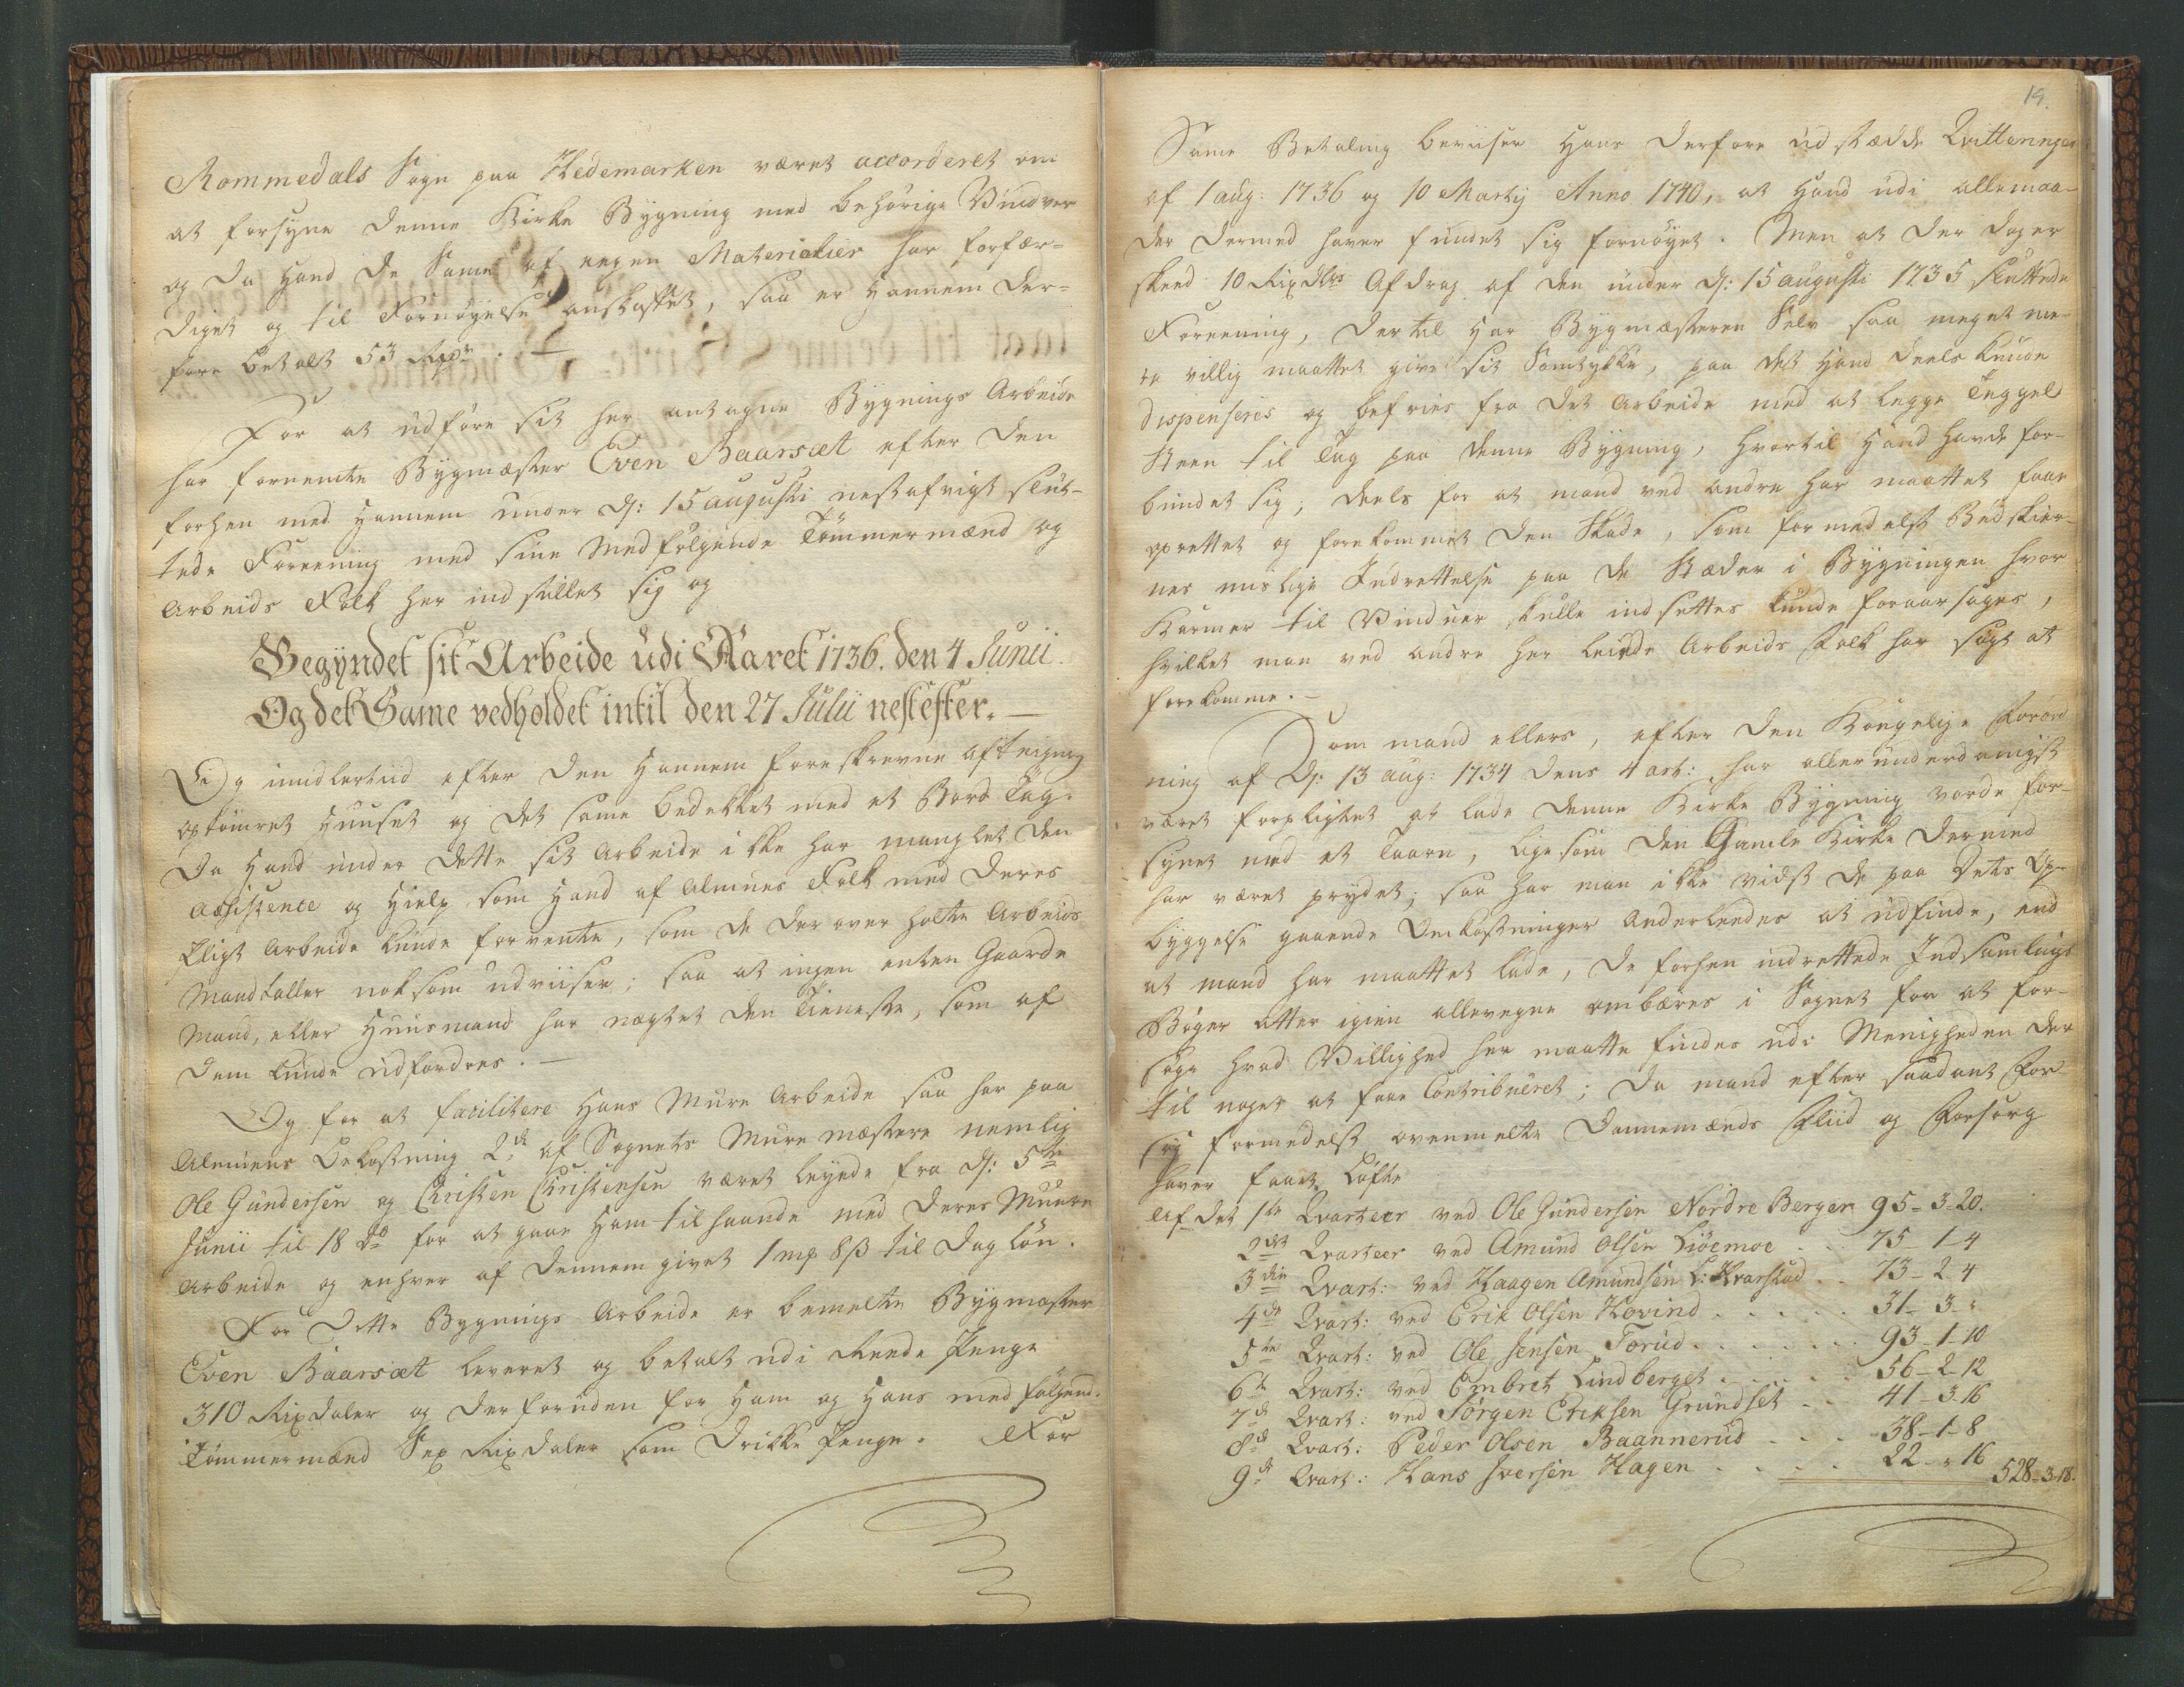 Rommedals Sogn paa Hedemarken været accorderet om
at forsyne denne Kirke Bygning med behørige Vinduer
og da Hand de Same af eegen Materialier har forfær-
diget og til Fornøyelse anskaffet, saa er Hannem der-
fore betalt 53 Rixdr. —
For at udføre sit her antagne Bygnings Arbeide
har fornemte Bygmæster Even Baarsæt efter den
forhen med Hannem under d: 15 augusti nestafvigt slut-
tede Foreening med sine Medfølgende Tømmermænd og
Arbeids Folk her indstillet sig og
Begyndet sit Arbeide udi Aaret 1736. den 4 Junii.
Og det Same vedholdet intil den 27 Julii nestefter. —
Og imidlertiid efter den Hannem foreskrevne aftegning
optømret Huuset og det same bedekket med et Bord Tag.
Da Hand under dette sit Arbeide ikke har manglet den
Assistence og Hielp som Hand af Almues Folk med deres
Pligt Arbeide kunde forvente, som de derover holte Arbeids
Mandtaller noksom udviiser; saa at ingen enten Gaarde
Mand, eller Huusmand har nægtet den Tieneste, som af
dem kunde udfordres. —
Og for at facilitere Hans Mure Arbeide saa har paa
Almuens Bekostning 2de af Sognets Mure mæstere nemlig
Ole Gundersen og Christen Christensen været leyede fra d: 5te
Junii til 18 do for at gaae Ham tilhaande med deres Muure
Arbeide og enhver af dennem givet 1 mp 8 ß til Dag løn.
For dette Bygnings Arbeide er bemelte Bygmæster
Even Baarsæt leveret og betalt udi Reede Penge
310 Rixdaler og derforuden for Ham og Hans medfølgend.
Tømmermænd Sex Rixdaler som Drikke Penge. For
19.
Same Betaling beviiser Hans derfore udstædde Qvittennger
af 1 aug: 1736 og 10 Martij Anno 1740, at Hand udi allemaa-
der dermed haver fundet sig fornøyet. Men at der dog er
skeed 10 Rixdlrs Afdrag af den under d: 15 augusti 1735 sluttede
Foreening, dertil har Bygmæsteren Selv saa meget me-
re villig maattet give sit Samtykke, paa det Hand deels kunde
dispenseres og befries fra det Arbeide med at legge Teggel
Steen til Tag paa denne Bygning, hvortil Hand havde for-
bundet sig, deels for at mand ved andre har maattet faae
oprettet og forekommet den Skade, som formedelst Bødskier-
nes mislige Indrettelse paa de Stæder i Bygningen hvor
Karmer til Vinduer skulle indsettes kunde foraarsages,
hvilket man ved andre her leiede Arbeids Folk har søgt at
forekomme. —
Som mand ellers, efter den Kongelige Forord-
ning af d: 13 aug: 1734 dens 4 art: har allerunderdanigst
været forpligtet at lade denne Kirke Bygning vorde for-
synet med et Taarn, ligesom den Gamle Kirke dermed
har været prydet; saa har man ikke vidst de paa dets Op-
byggelse gaaende Omkostninger anderleedes at udfinde, end
at mand har maattet lade, de forhen indrettede Indsamlings
Bøger atter igien allevegne ombæres i Sognet for at for-
søge hvad Villighed her maatte findes udi Menigheden der
til noget at faae Contribueret; da mand efter saadant For-
søg formedelst ovenmelte Dannemænds Fliid og Forsorg
haver faaet Løfte
Af det 1te Qvarteer ved Ole Gundersen Nordre Bergen 95 - 3 - 20.
2det Qvarteer ved Amund Olsen Liøemoe . . 75 - 1 - 4
3die Qvart: ved Haagen Amundsen L: Kvarstad . . 73 - 2 - 4
4de Qvart: ved Erik Olsen Hovind . . . . . 31 - 3 - :
5te Qvart: ved Ole Jensen Torud . . . . . . . 93 - 1 - 10
6te Qvart: ved Embret Lindberget . . . . . 56 - 2 - 12
7de Qvart: ved Jørgen Eriksen Grundset . . 41 - 3 - 16
8de Qvart: Peder Olsen Baannerud . . . 38 - 1 - 8
9de Qvart: Hans Iversen Hagen . . . . 22 - : 16
528 - 3 - 18.